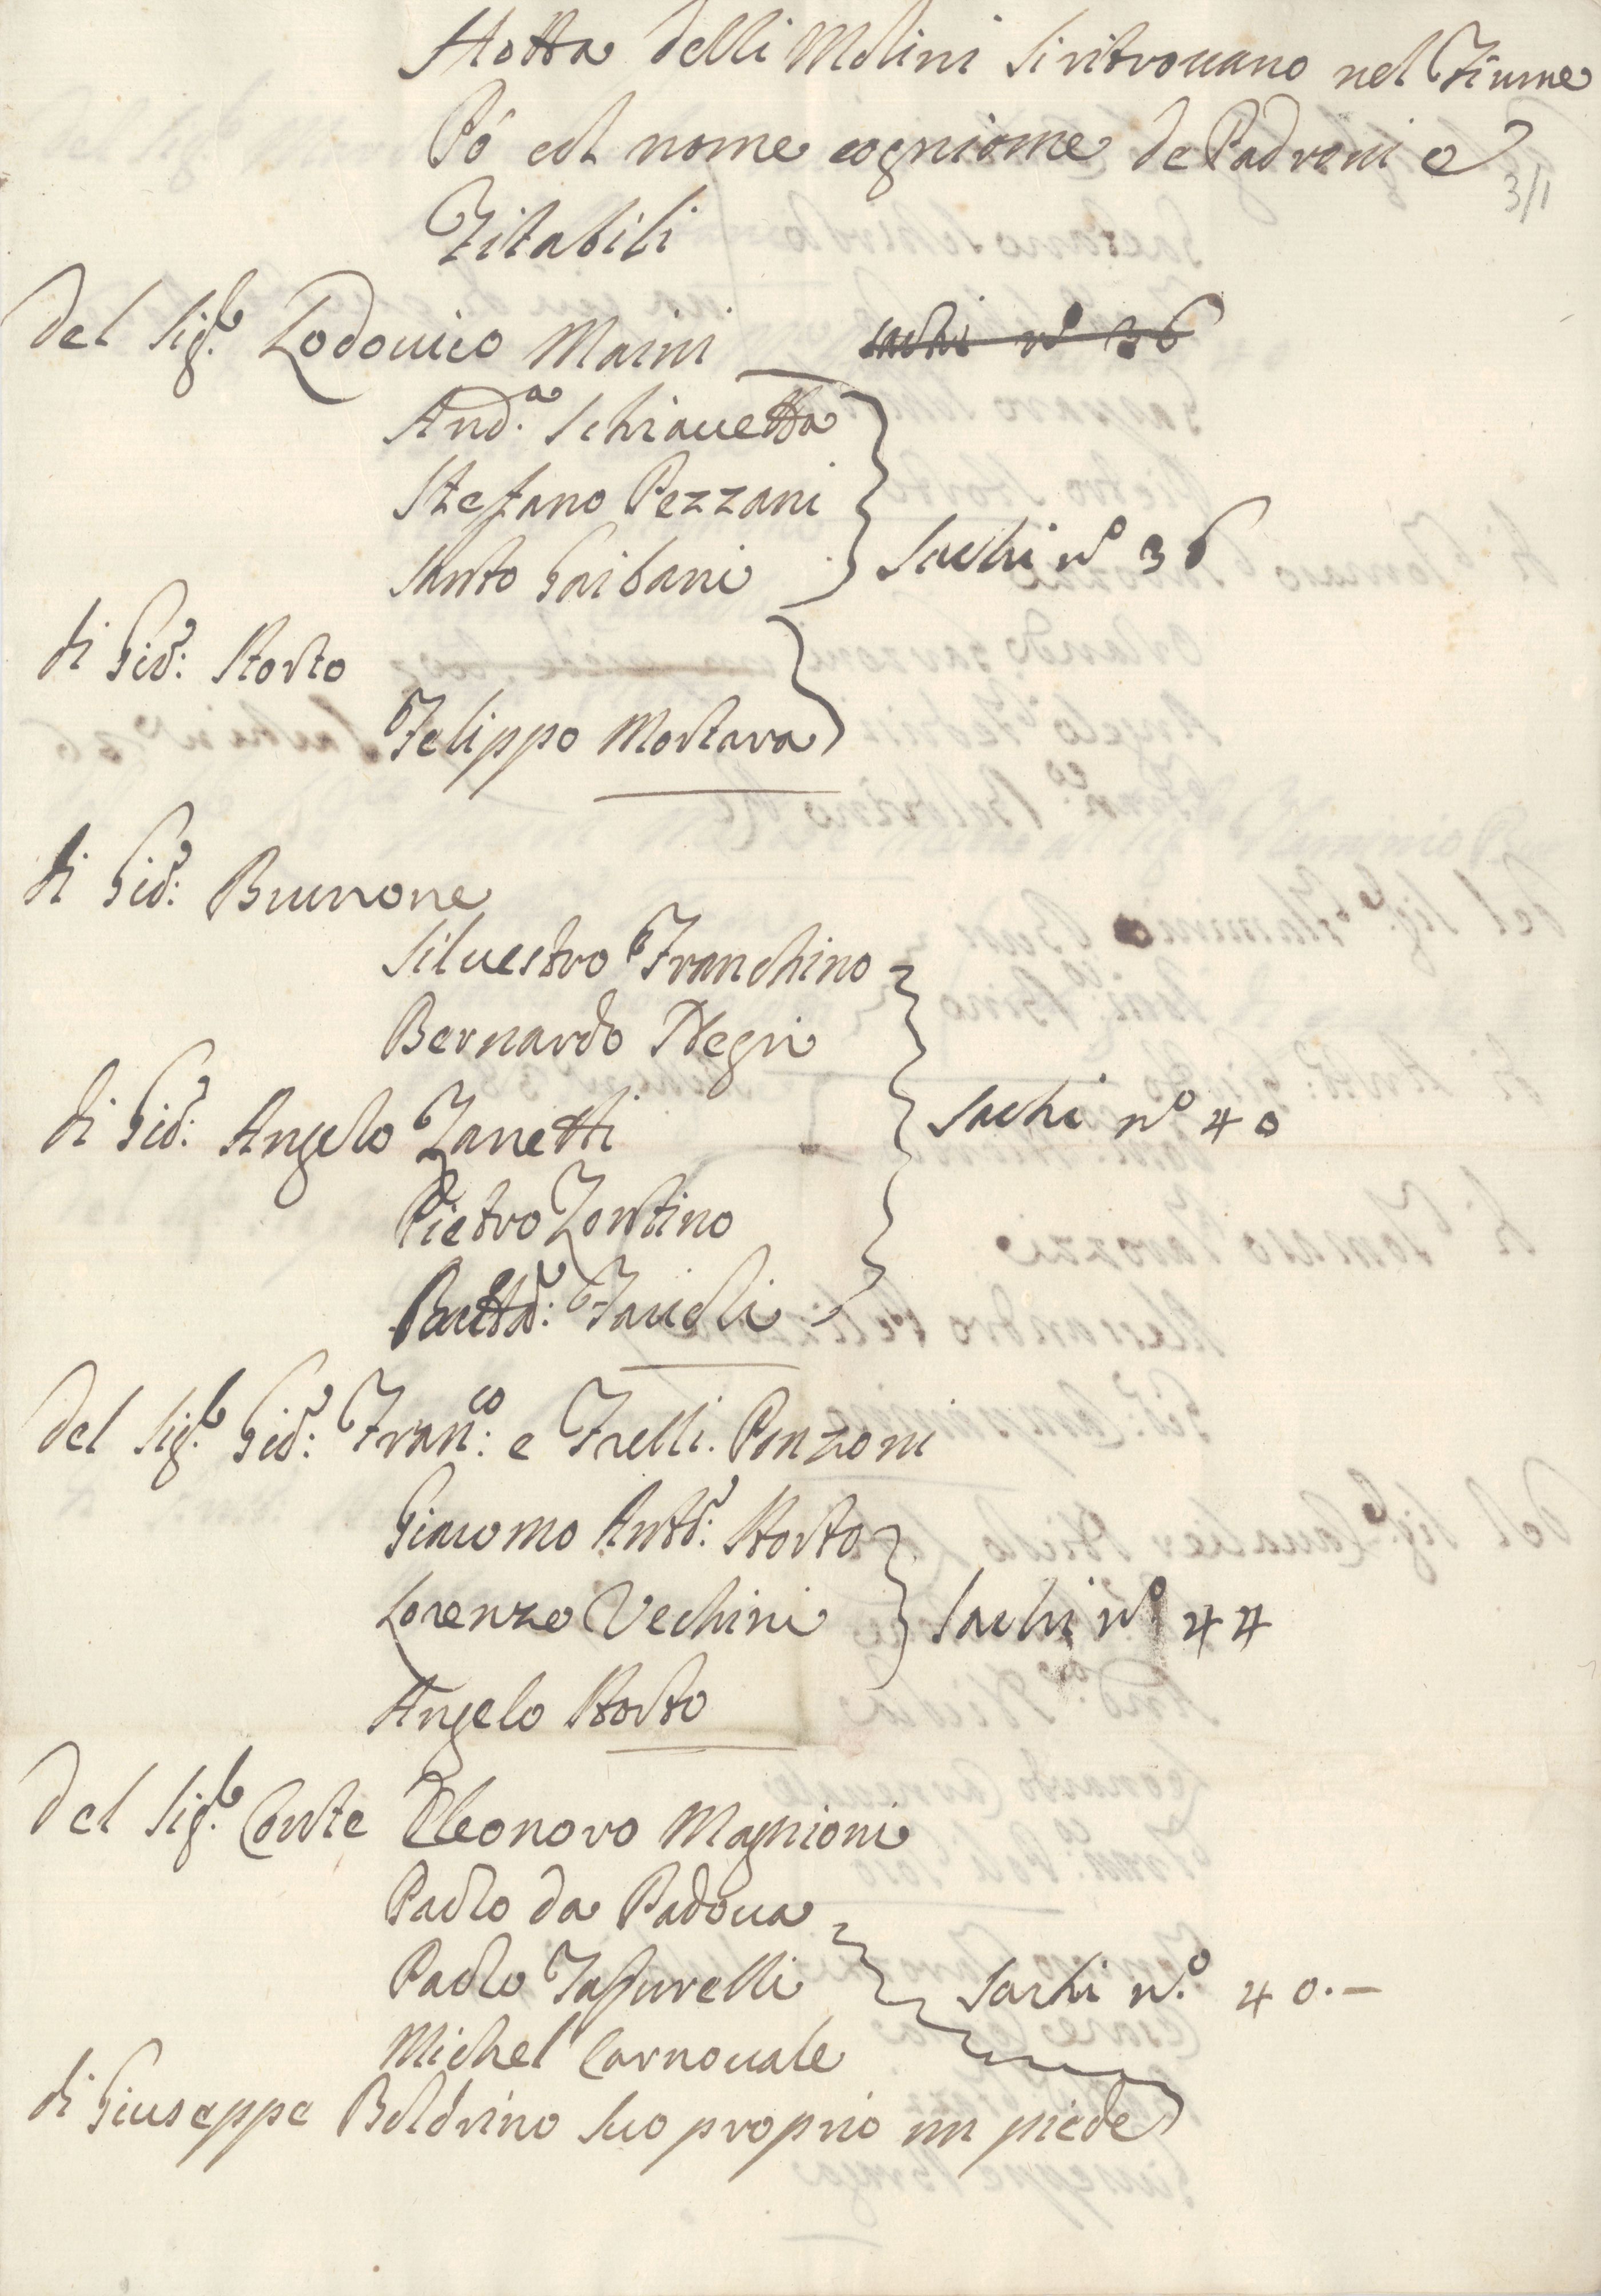 Notta delli Molini si ritrouano nel Fiume
Pò col nome cogniome de Padroni e
Fitabili
3/1
del Sig.r Lodouico Maini sachi n.o 36
And.a Schiauetta
Stefano Pezzani
Santo Gaibani
Sachi n.o 36
di Gio: Storto
Felippo Mortara
di Gio: Brunone
Siluestro Franchino
Bernardo Negri
di Gio: Angelo Zanetti
Sachi n.o 40
Pietro Zontino
Batta: Fauoli
del Sig.r Gio: Fran.co e Frelli. Ponzoni
Giacomo Anto: Storto
Lorenzo Vechini
Sachi n.o 44
Angelo Storto
del Sig.r Conte Eleonoro Magnioni
Paolo da Padoua
Paolo Taffurelli
Sachi n.o 40.—
Michel Carnouale
di Giuseppe Boldrino suo proprio un piede